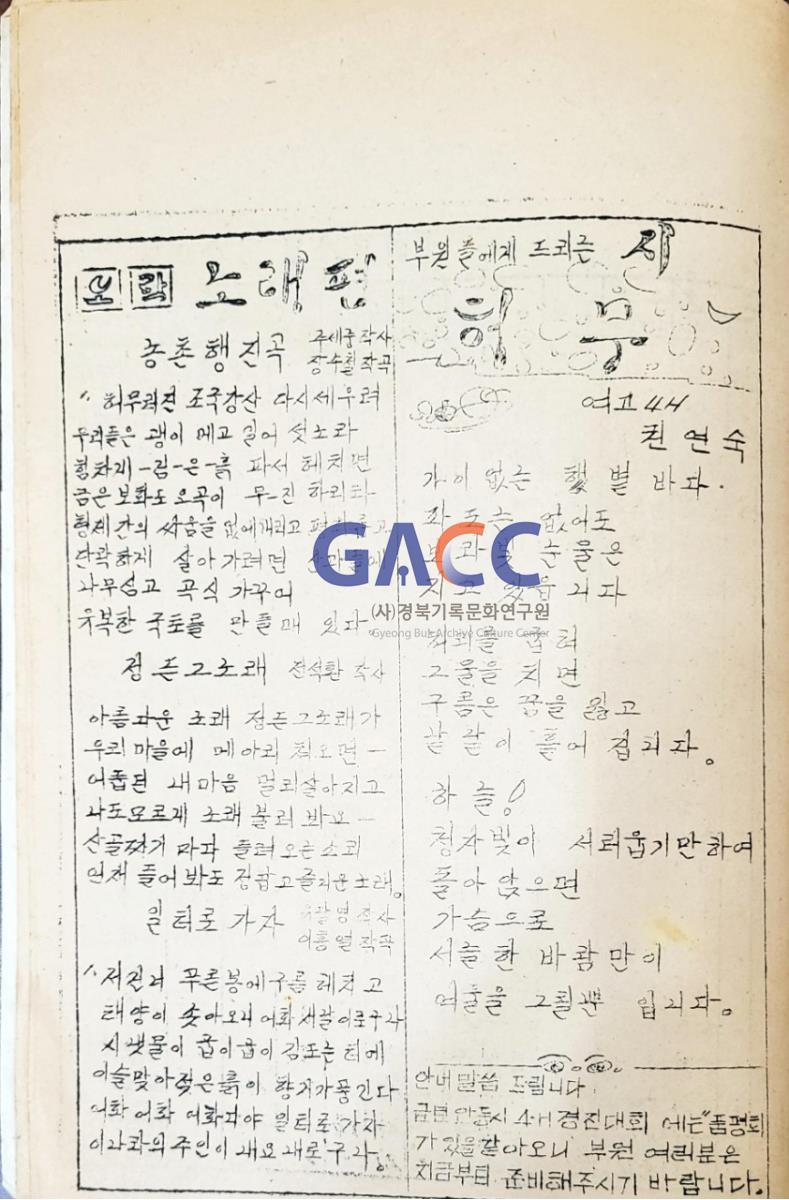 오락 노래편
농촌행진곡 주세중작사
장수철작곡
1. 허무러진 조국강산 다시세우려
우리들은 괭이 메고 일어 섯노라
힘차게 -김-은-흙 파서 헤치면
금은보화도 오곡이 무-진 하리라
형제간의 싸움을 없애버리고 평화롭고
단락하게 살아가려면 산과들에
나무심고 곡식 가꾸어
유복한 국토를 만들때 있다.
정든그노래 전석환 작사
아름다운 노래 정든그노래가
우리마을에 메아리 쳐오면-
어둡던 내마음 멀리살아지고
나도모르게 노래 불러 봐요-
산골짝기 마다 들려오는소리
언제 들어봐도 정답고즐거운노래.
일터로 가자 작사
이흥열작곡
1. 저건너 푸른봉에구름헤치고
태양이 솟아오니 어화 새날이로구나
시냇물이 굽이굽이 감도는 터에
이슬맞아젖은흙이 향기가풍긴다
어화 어화 어화디야 일터로 가자
이나라의주인이 내요 내로구나.
부원들에게 드리는 시
허무
여고4H
권연숙
가이없는 햇볕 바다.
파도는 없어도
눈물은
지고 있읍니다
허리를 굽혀
그물을 치면
구름은 꿈을 잃고
낱낱이 흩어집니다.
하늘!
청자빛이 서러웁기만하여
돌아앉으면
가슴으로
서늘한 바람만이
여울을 그릴뿐 입니다.
안내말씀 드립니다.
금번 안동시 4-H경진대회 에는"품평회
가있을할아오니 부원 여러분은
지금부터 준비해주시기 바랍니다.
GACC
(사)경북기록문화연구원
Gyeong Buk Archive Culture Center